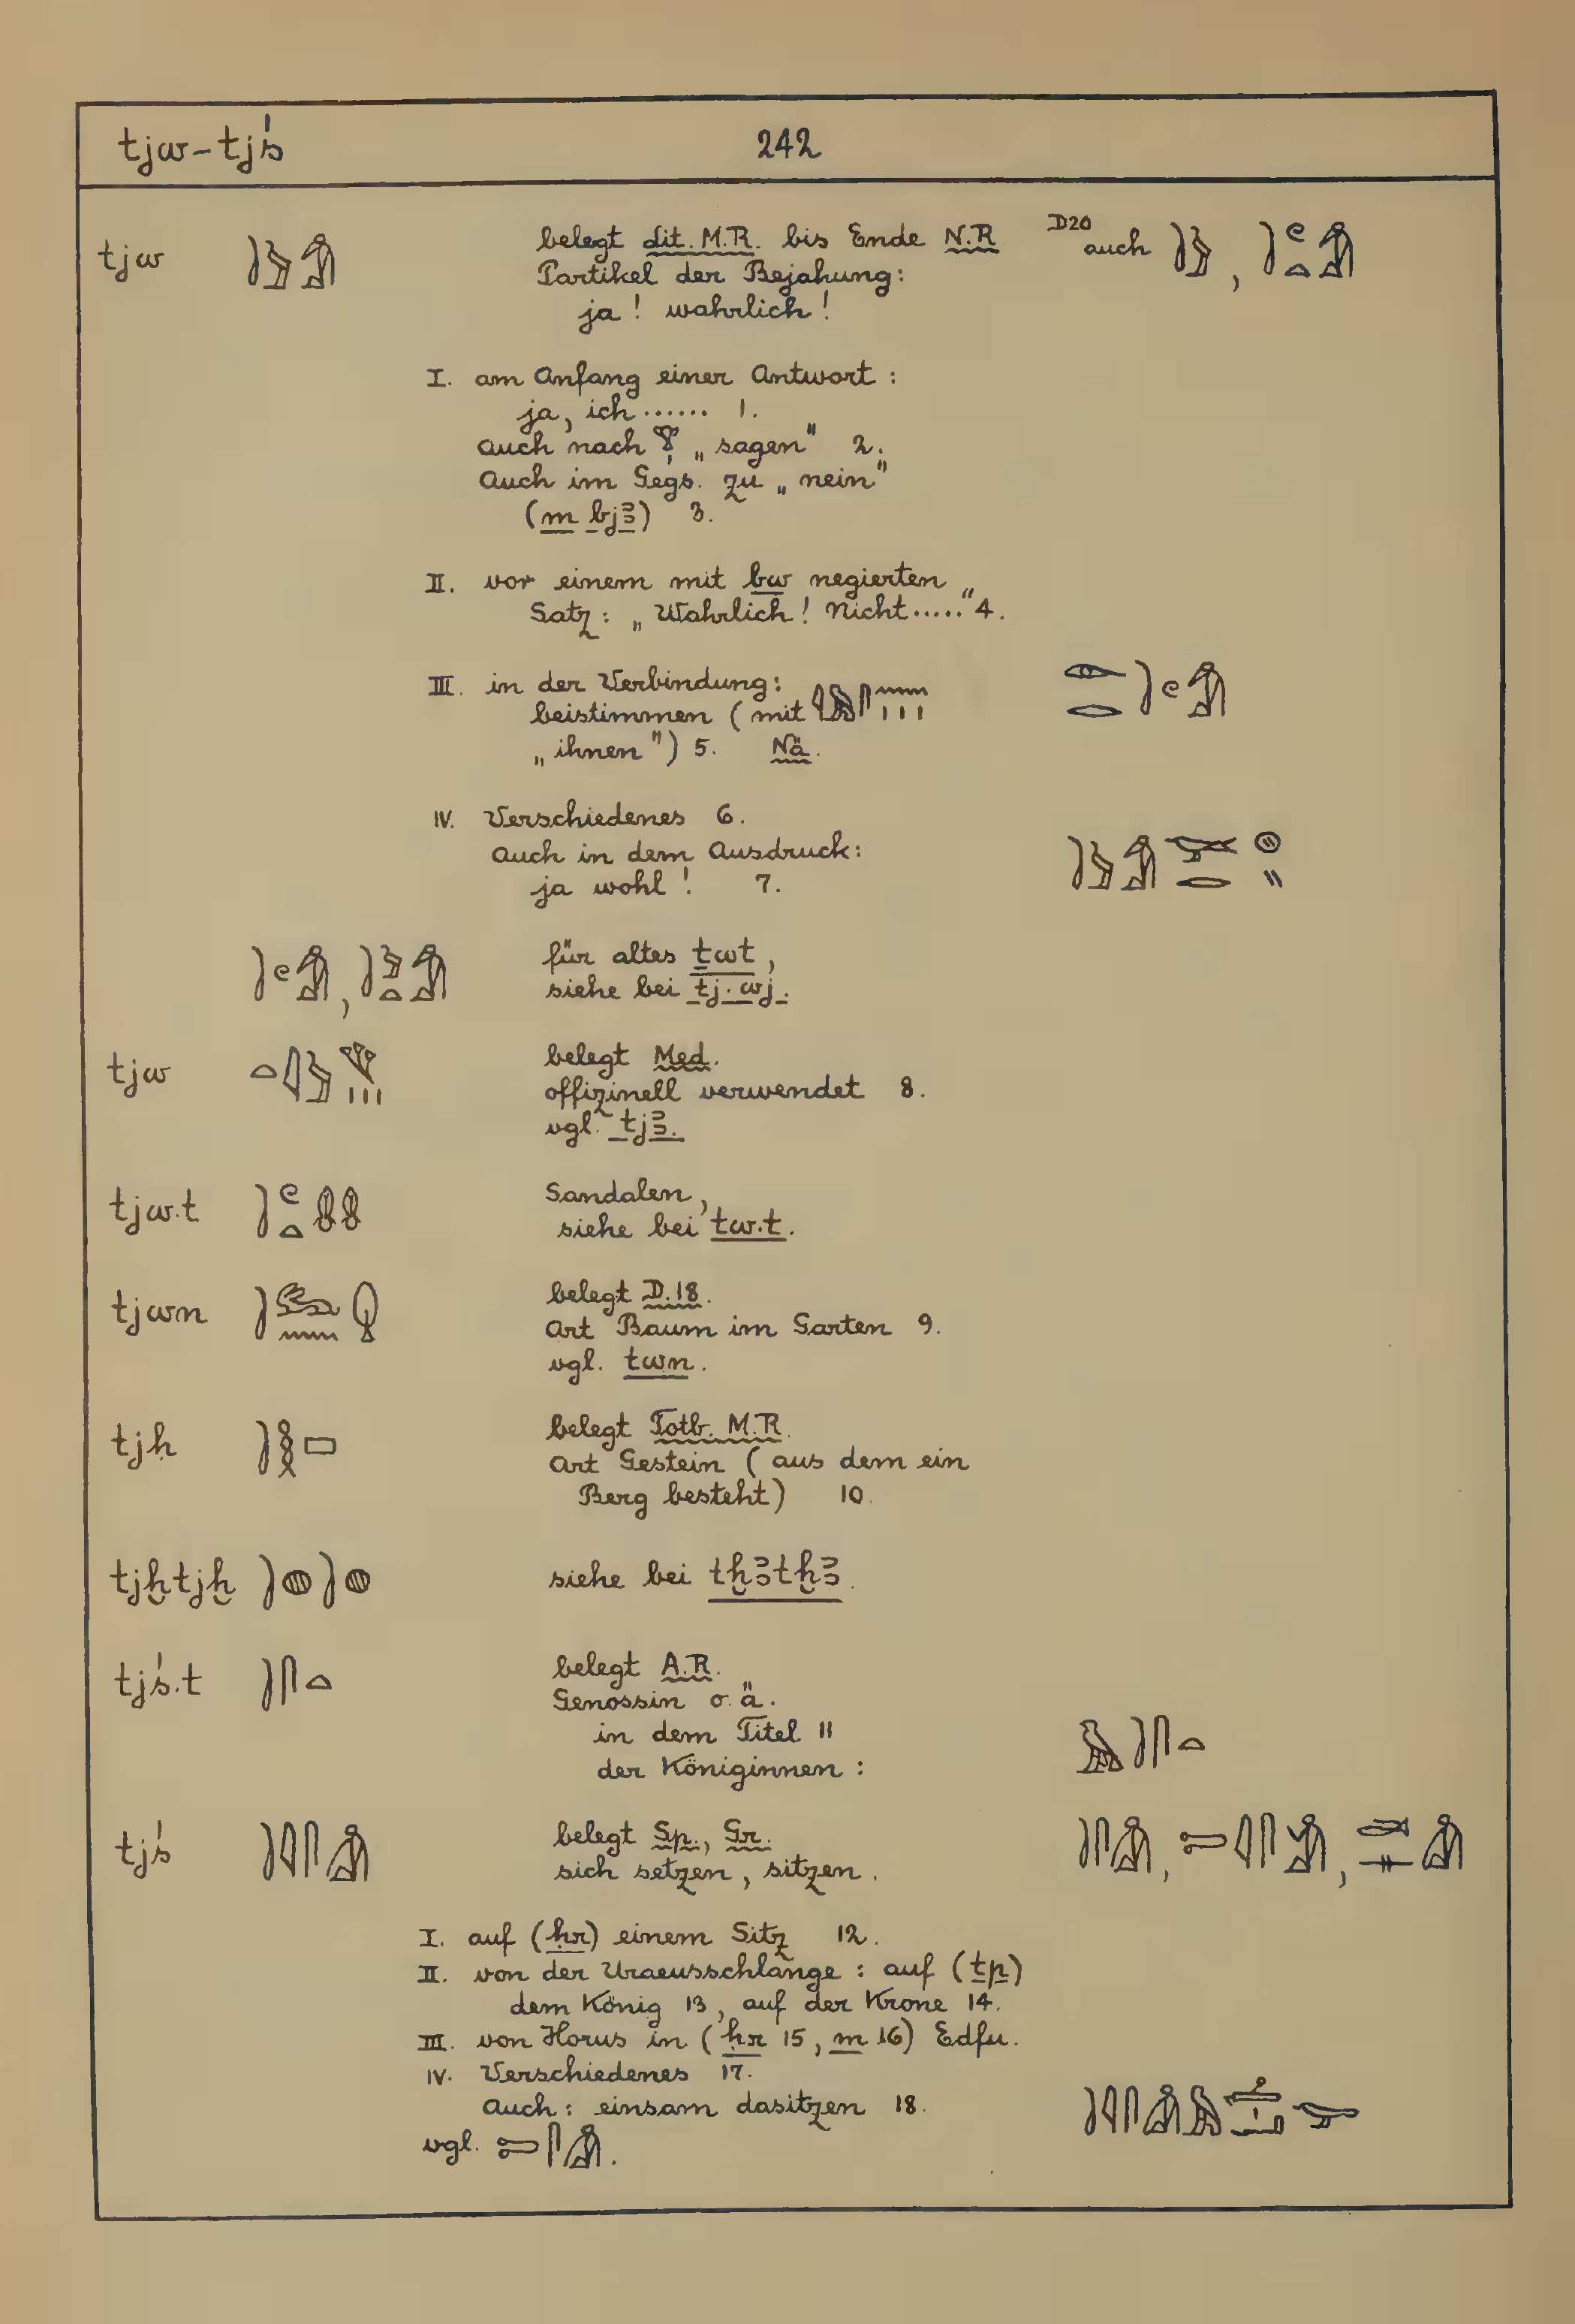 tjw–tjś 242
tjw belegt Lit. M.R. bis Ende N.R D20 auch
Partikel der Bejahung:
ja! wahrlich!
I. am Anfang einer Antwort:
ja, ich...... 1.
Auch nach „sagen" 2.
Auch im Gegs. zu „nein"
(m bjꜣ) 3.
II. vor einem mit bw negierten
Satz: „Wahrlich! Nicht....." 4.
III. in der Verbindung:
beistimmen (mit
„ihnen") 5. Nä.
IV. Verschiedenes 6.
Auch in dem Ausdruck:
ja wohl! 7.
für altes ṯwt,
siehe bei tj.wj.
tjw belegt Med.
offizinell verwendet 8.
vgl. tjꜣ.
tjw.t Sandalen,
siehe bei tw.t.
tjwn belegt D.18.
Art Baum im Garten 9.
vgl. twn.
tjḥ belegt Totb. M.R.
Art Gestein (aus dem ein
Berg besteht) 10.
tjḫtjḫ siehe bei tḫꜣtḫꜣ.
tjś.t belegt A.R.
Genossin o.ä.
in dem Titel 11
der Königinnen:
tjś belegt Sp., Gr.
sich setzen, sitzen.
I. auf (ḥr) einem Sitz 12.
II. von der Uraeusschlange: auf (tp)
dem König 13, auf der Krone 14.
III. von Horus in (ḥr 15, m 16) Edfu.
IV. Verschiedenes 17.
Auch: einsam dasitzen 18.
vgl.